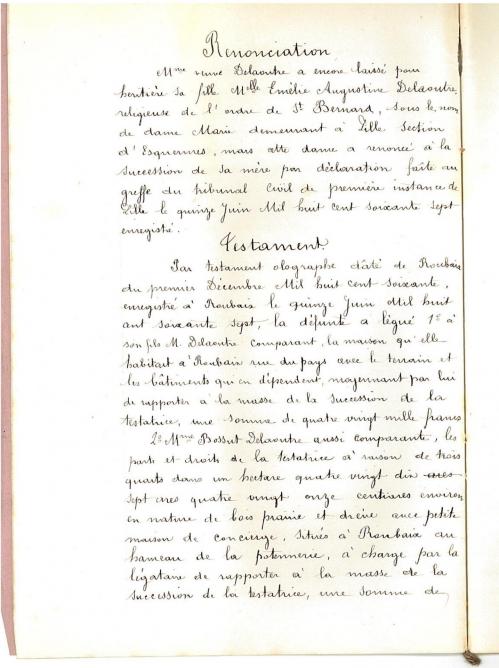 Renonciation
Mme veuve Delaoutre a encore laissé pour
heritière sa fille Melle Emélie Augustine Delaoutre,
religieuse de l'ordre de St Bernard, sous le nom
de dame Marie demeurant à Lille section
d'Esquermes, mais cette dame a renoncé à la
succession de sa mère par déclaration faite au
greffe du tribunal civil de première instance de
Lille le quinze Juin Mil huit cent soixante sept
enregistré.
Testament.
Par testament olographe daté de Roubaix
du premier Décembre Mil huit cent soixante,
enregistré à Roubaix le quinze Juin Mil huit
cent soixante sept, la défunte a légué 1º à
son fils M. Delaoutre comparant, la maison qu'elle
habitait à Roubaix rue du pays avec le terrain et
les bâtiments qui en dépendent, moyennant par lui
de rapporter à la masse de la succession de la
testatrice, une somme de quatre vingt mille francs
2º Mme Bossut Delaoutre aussi comparante, les
parts et droits de la testatrice à raison de trois
quarts dans un hectare quatre vingt dix ares
sept ares quatre vingt onze centiares environ
en nature de bois prairie et drève avec petite
maison de concierge, situés à Roubaix au
hameau de la potennerie, à charge par la
légataire de rapporter à la masse de la
succession de la testatrice, une somme de